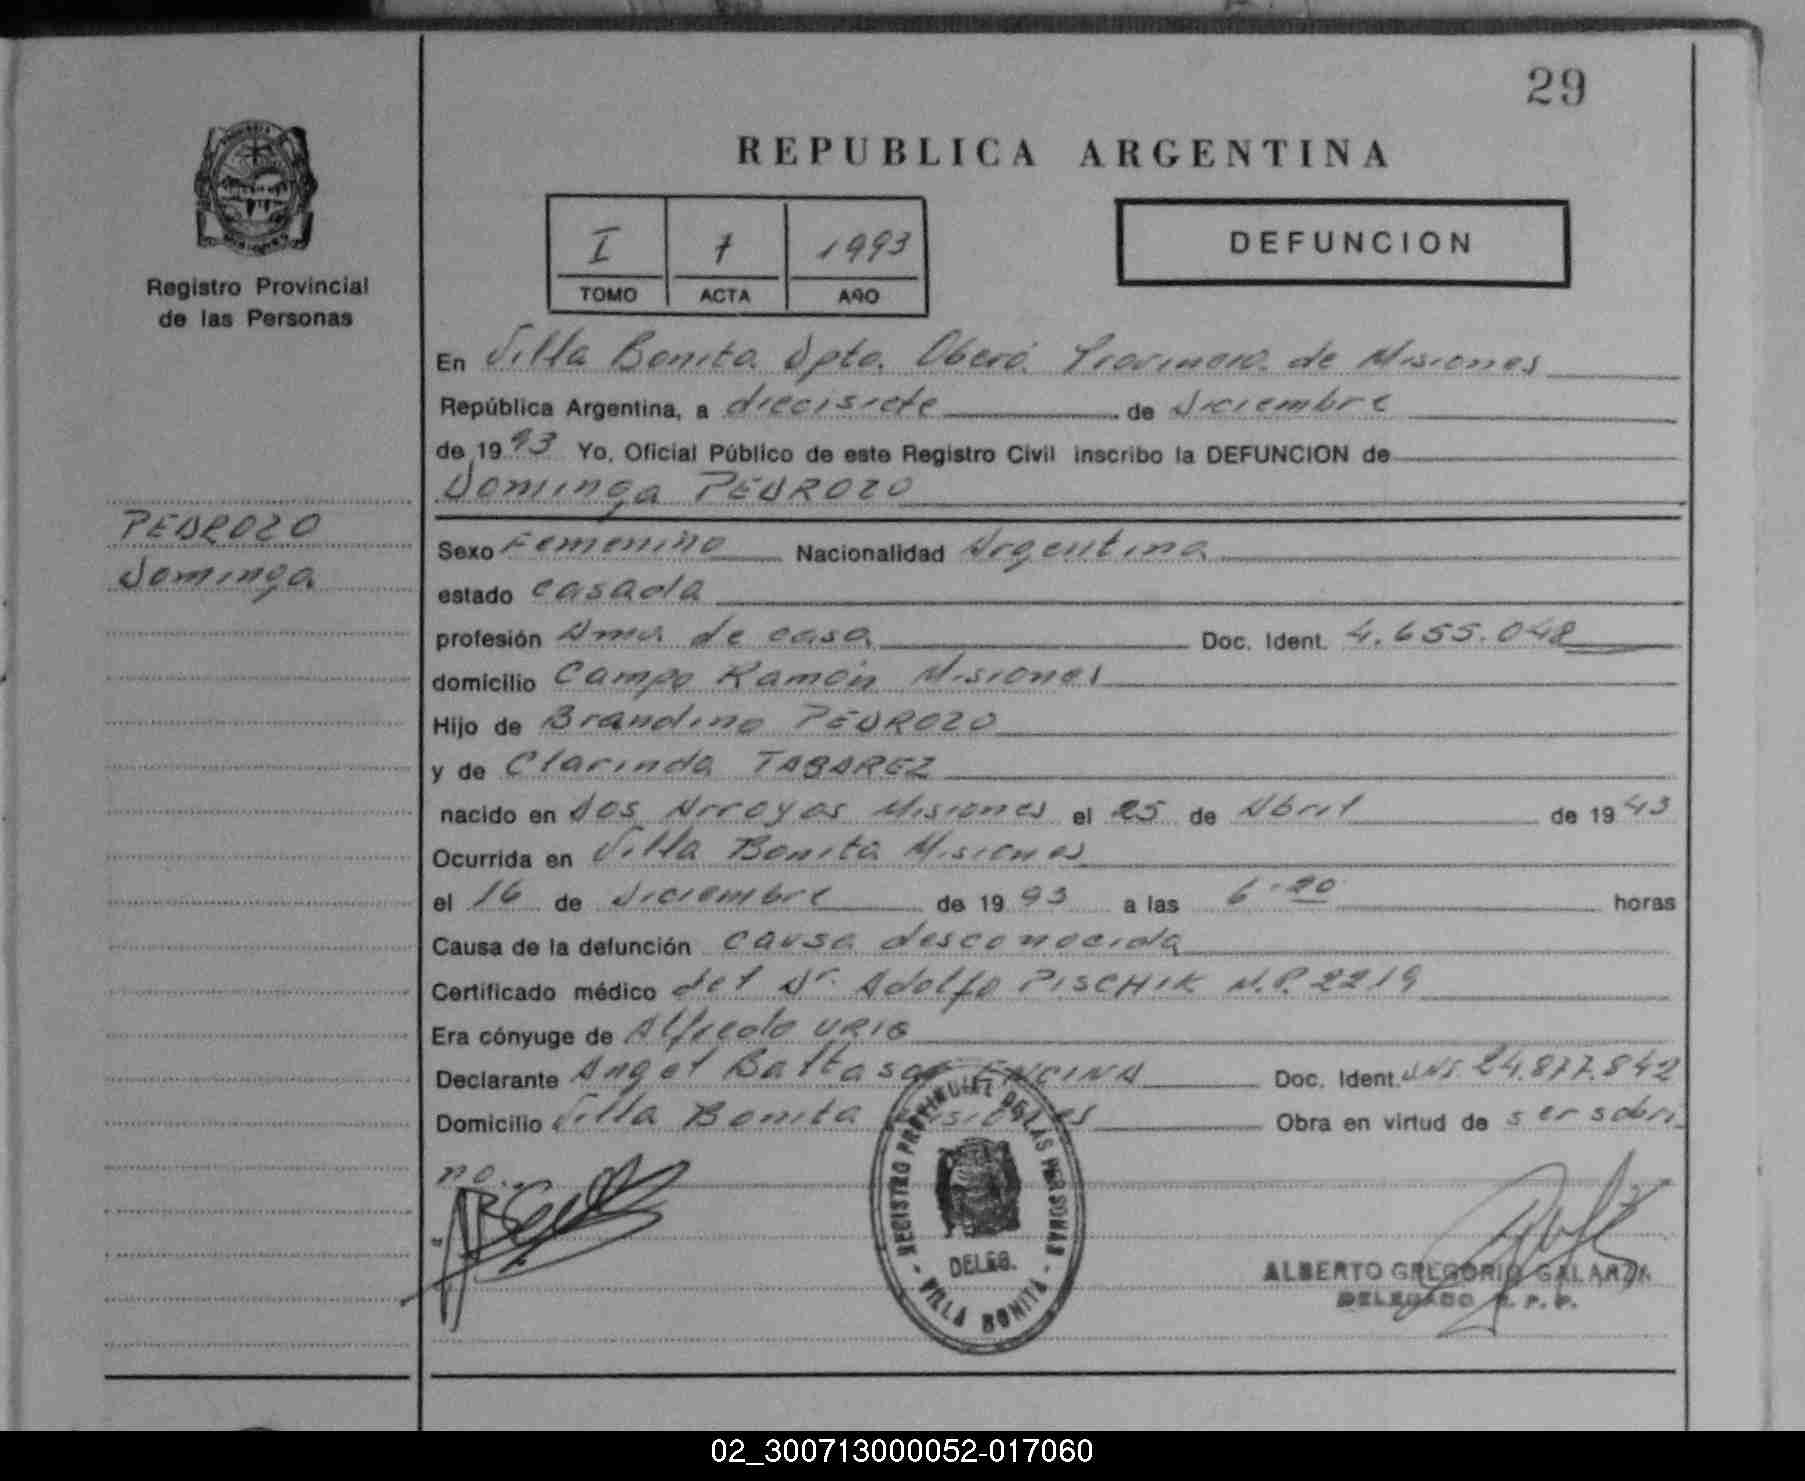 29
REPUBLICA ARGENTINA
I 7 1993
TOMO ACTA AÑO
DEFUNCION
Registro Provincial
de las Personas
PEDROZO
Dominga
En Villa Bonita Dpto. Oberá Provincia de Misiones
República Argentina, a diecisiete de Diciembre
de 1993 Yo, Oficial Público de este Registro Civil inscribo la DEFUNCION de
Dominga PEDROZO
Sexo Femenino Nacionalidad Argentina
estado casada
profesión Ama de casa Doc. Ident. 4.655.048
domicilio Campo Ramón Misiones
Hijo de Brandino PEDROZO
y de Clarinda TABAREZ
nacido en Dos Arroyos Misiones el 25 de Abril de 1943
Ocurrida en Villa Bonita Misiones
el 16 de Diciembre de 1993 a las 6-20 horas
Causa de la defunción causa desconocida
Certificado médico del Dr. Adolfo PISCHIK M.P. 2219
Era cónyuge de Alfredo
Declarante Angel Baltasar ENCINA Doc. Ident. DNI 24.877.842
Domicilio Villa Bonita Misiones Obra en virtud de ser sobri
no..
REGISTRO PROVINCIAL DE LAS PERSONAS
DELEG.
- VILLA BONITA -
ALBERTO GREGORIO GALARZA
DELEGADO R. P. P.
02_300713000052-017060